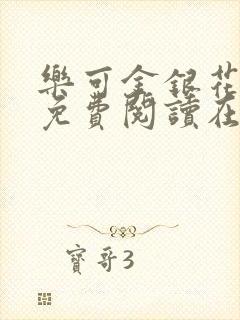 樂可金銀花
免費閱讀在
寶哥3